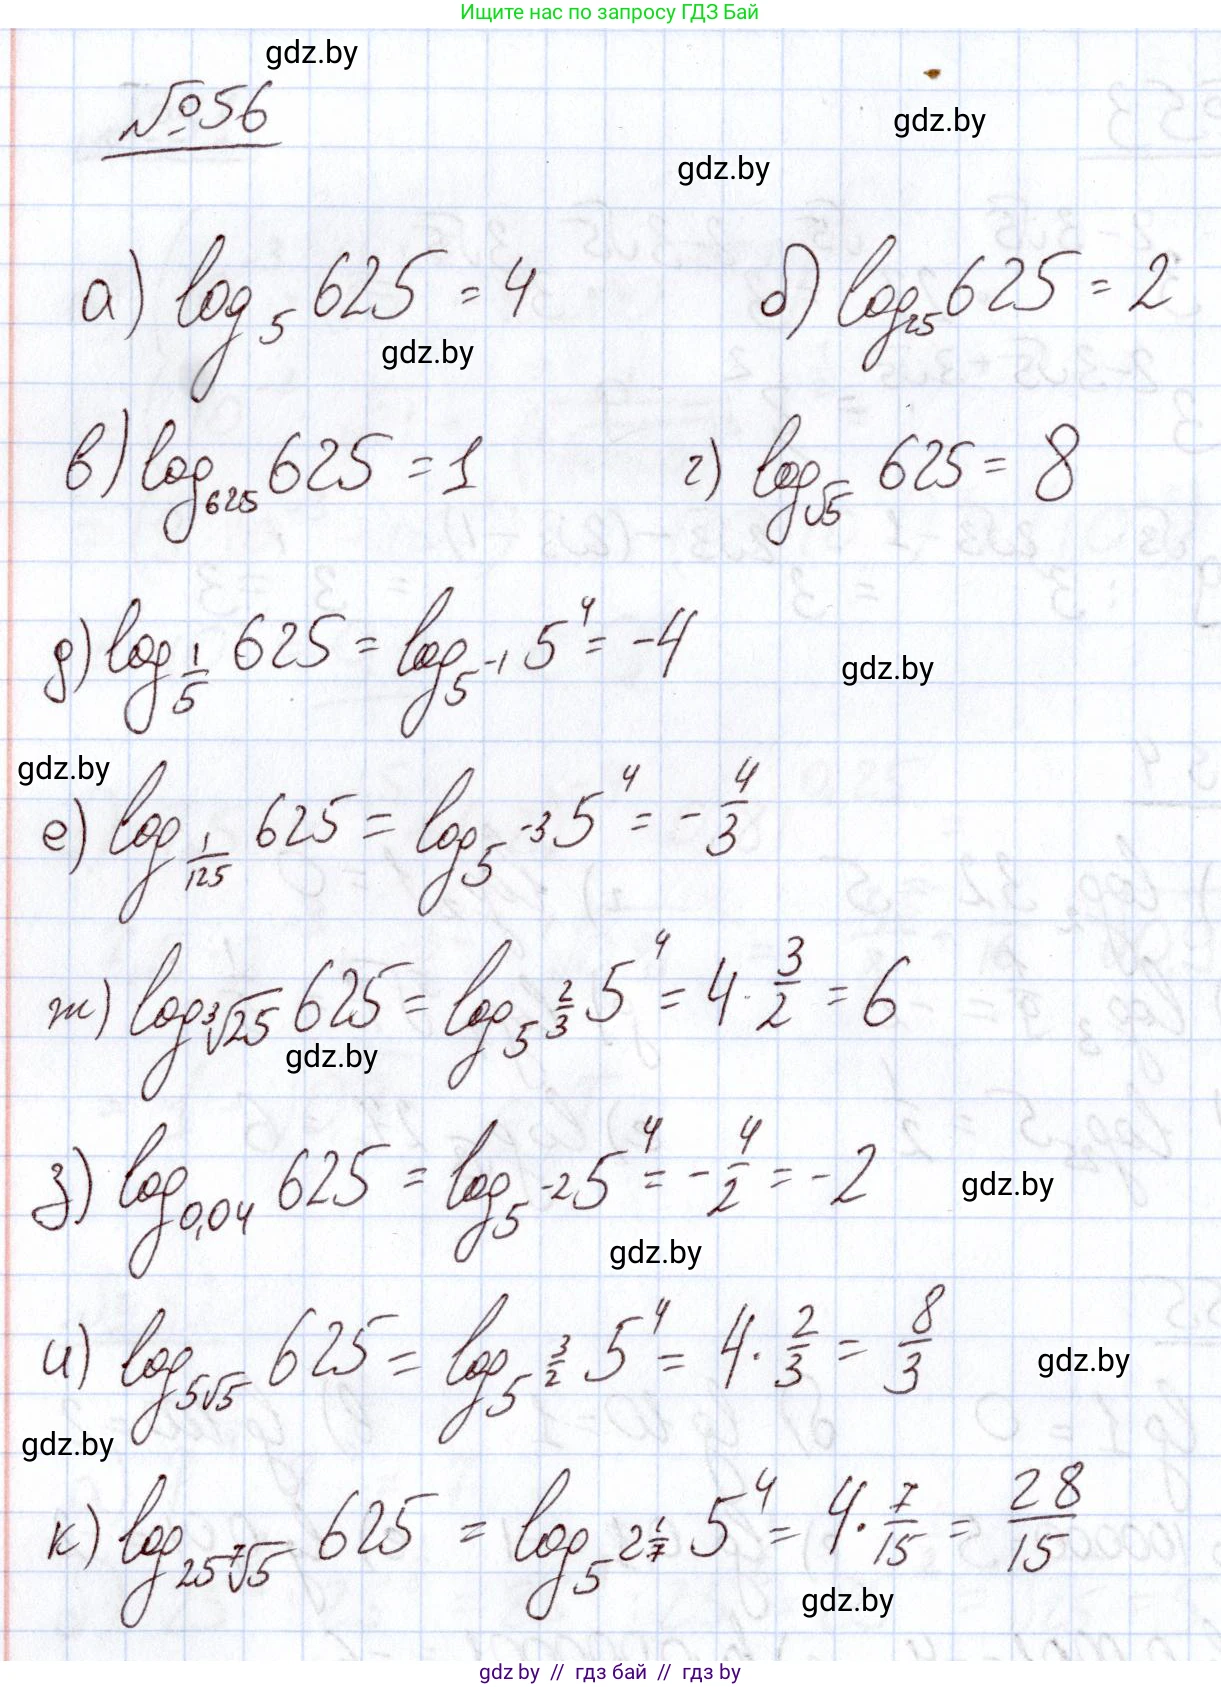 Ищите нас по запросу ГДЗ Бай
gdz.by
№56
gdz.by
gdz.by
а) log₅ 625 = 4
б) log₂₅ 625 = 2
gdz.by
в) log₆₂₅ 625 = 1
г) log_√5 625 = 8
д) log_1/5 625 = log_5⁻¹ 5⁴ = -4
gdz.by
gdz.by
е) log_1/125 625 = log_5⁻³ 5⁴ = -4/3
ж) log_³√25 625 = log_5^2/3 5⁴ = 4 · 3/2 = 6
gdz.by
з) log_0,04 625 = log_5⁻² 5⁴ = -4/2 = -2
gdz.by
gdz.by
и) log_5√5 625 = log_5^3/2 5⁴ = 4 · 2/3 = 8/3
gdz.by
gdz.by
к) log_25⁷√5 625 = log_5^2 1/7 5⁴ = 4 · 7/15 = 28/15
gdz.by
gdz by // гдз бай // гдз by